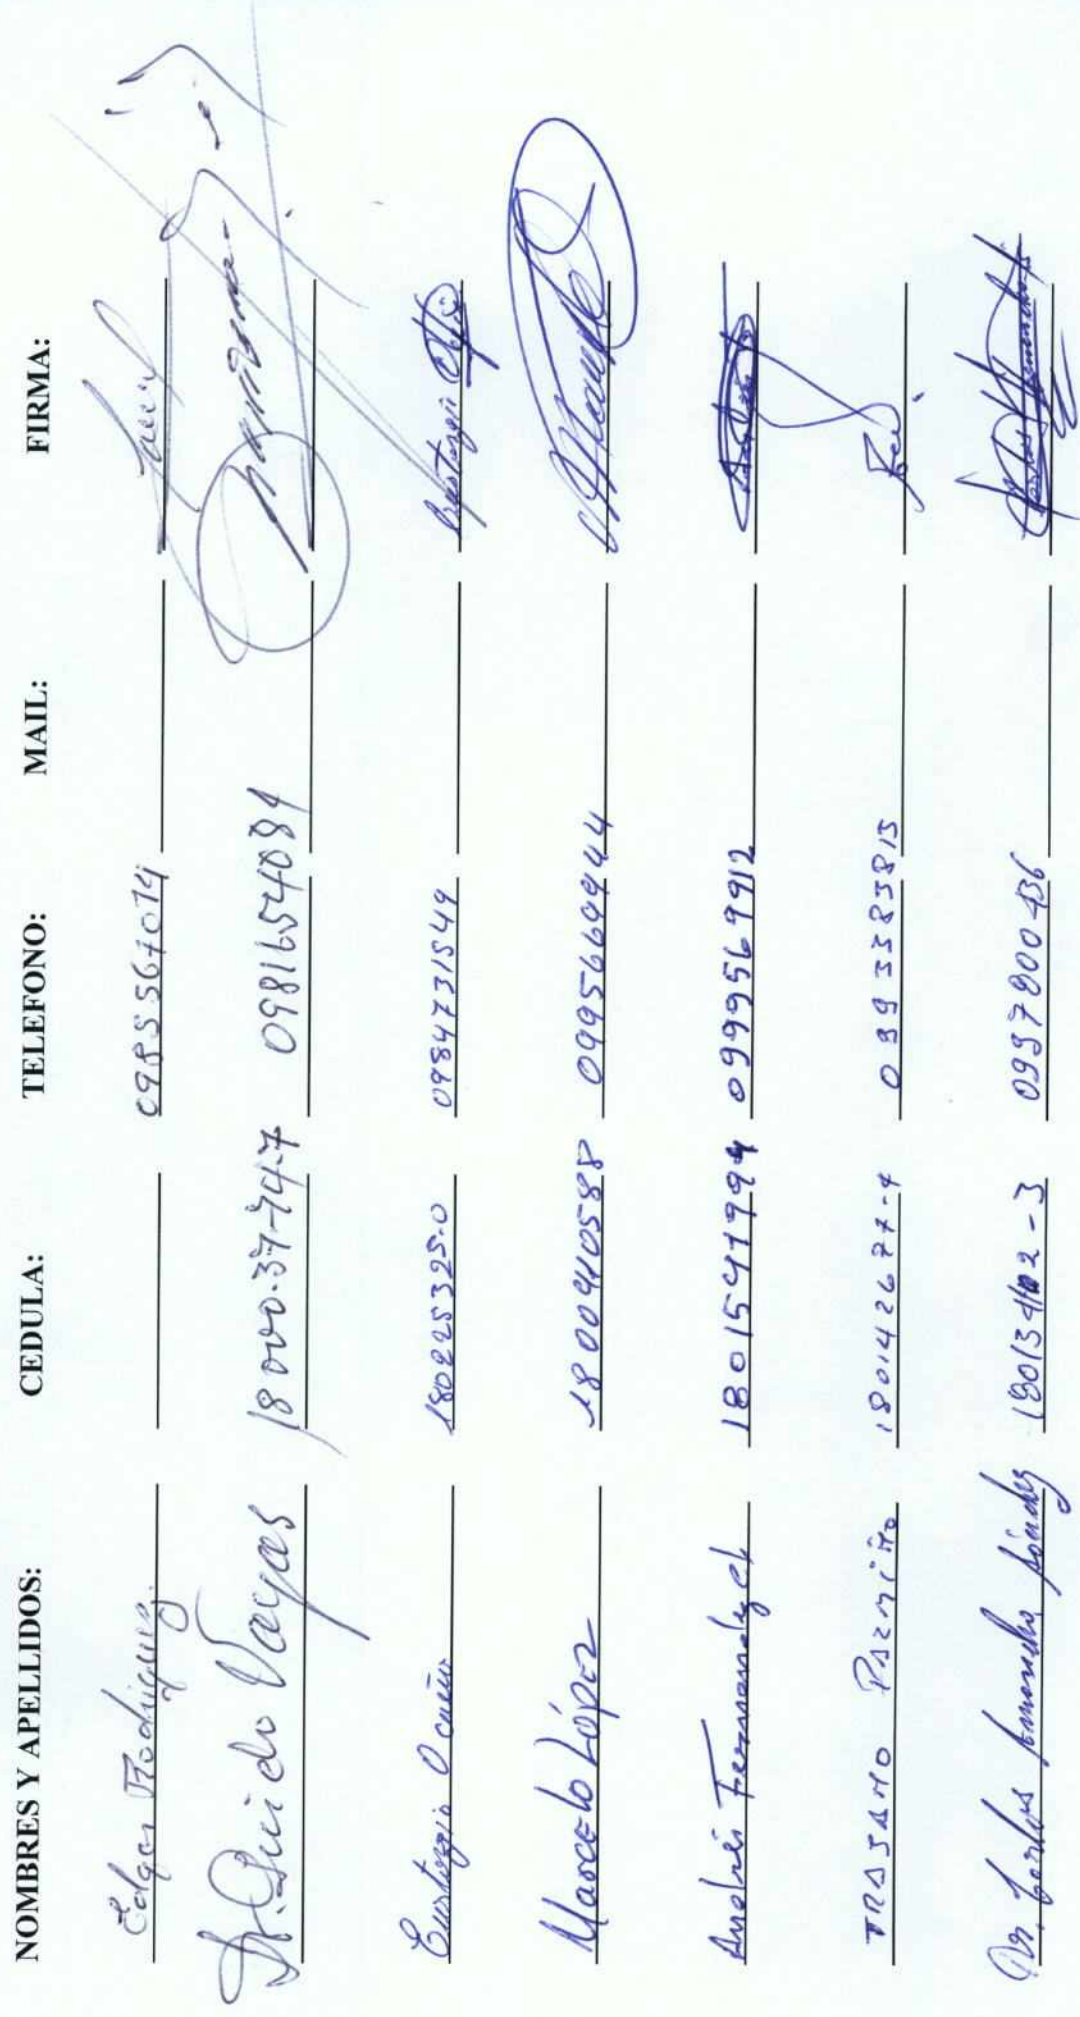 NOMBRES Y APELLIDOS: CEDULA: TELEFONO: MAIL: FIRMA:
Edgar Rodriguez 0985567014
Dr. Guido Vargas 18000.37-74-7 0981654084
Eustorgio Ocaña 180225325-0 0984731549
Marcelo López 1800410588 0995669444
Andrés Fernandez 1801541994 0999569912
TRAJANO PAZMIÑO 180142677-4 0993383815
Dr. Carlos Amancha 0997800436